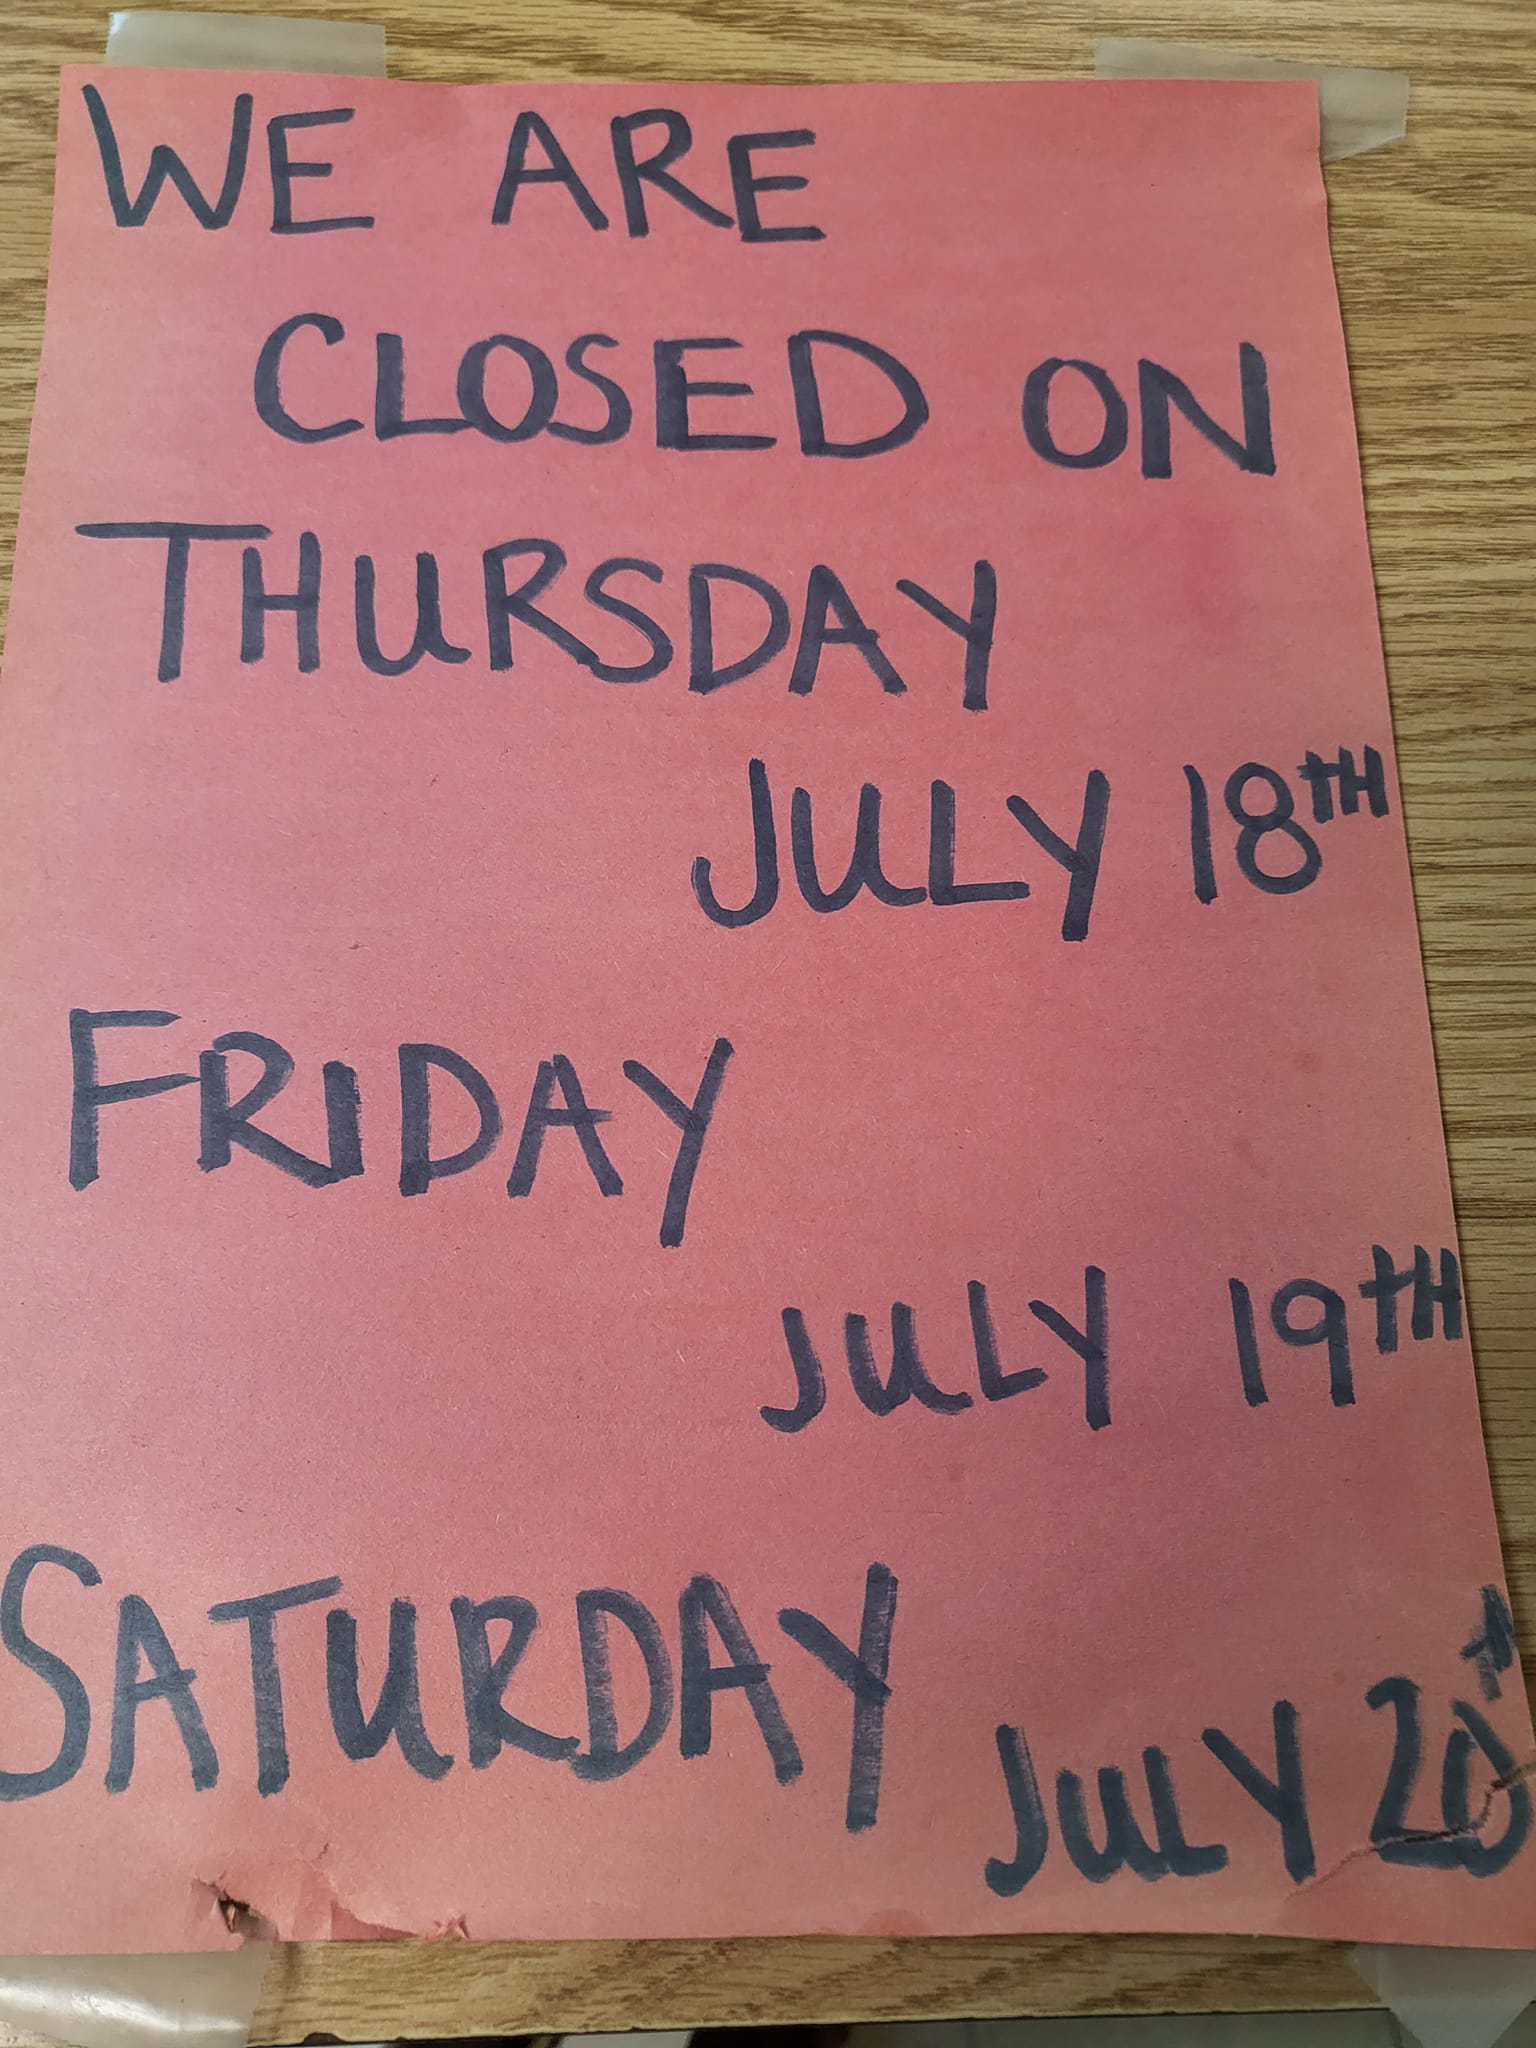 WE ARE
CLOSED ON
THURSDAY
JULY 18TH
FRIDAY
JULY 19TH
SATURDAY
JULY 20TH